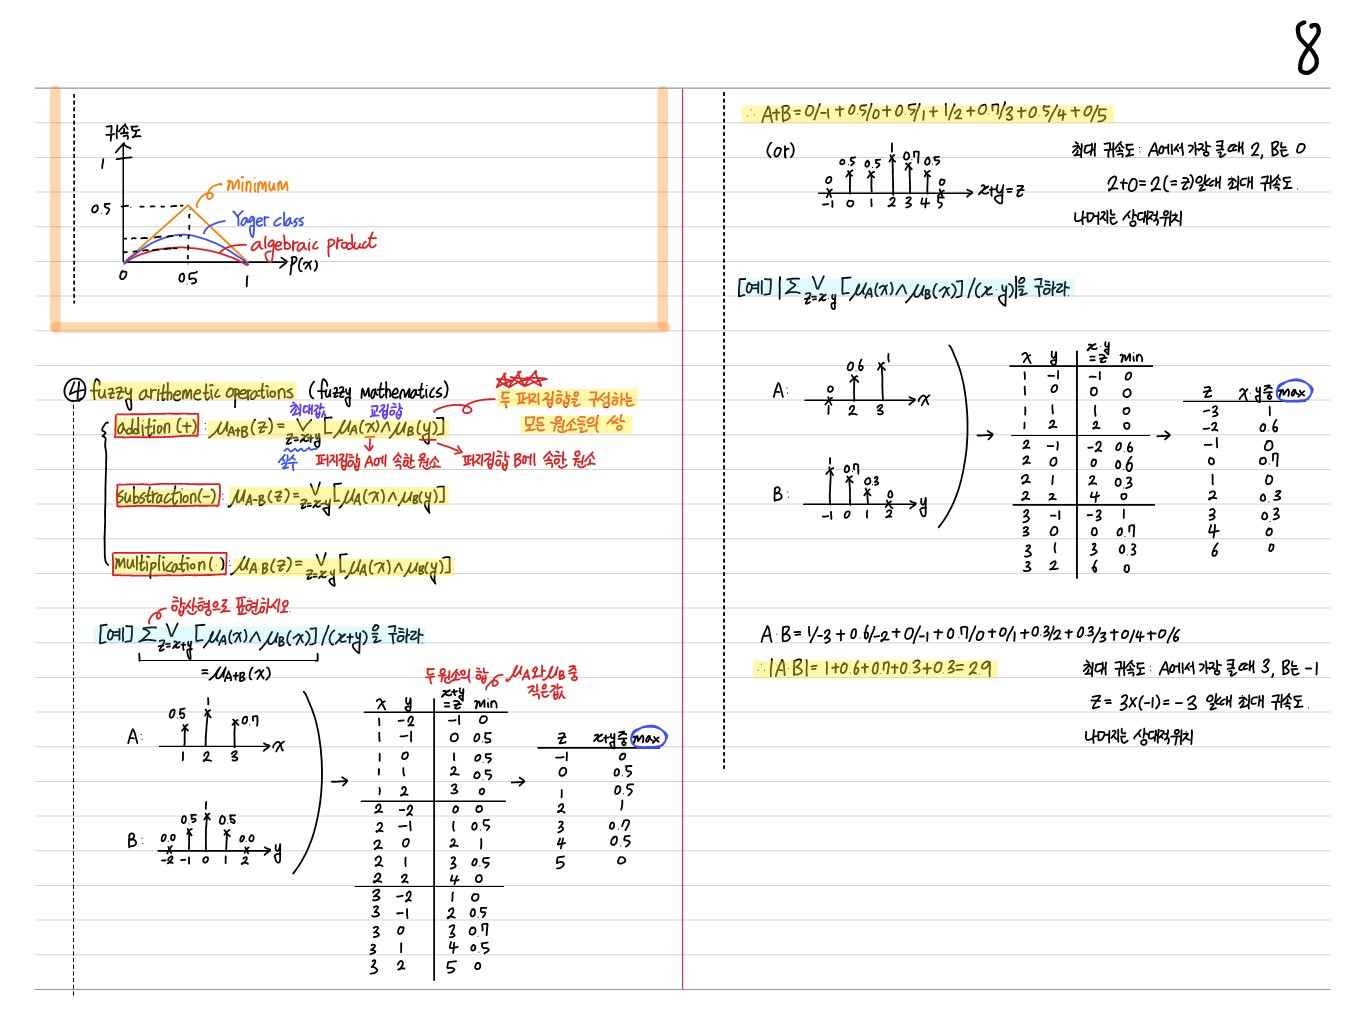 8
귀속도
1
0.5
minimum
Yager class
algebraic product
P(x)
0 0.5 1
④ fuzzy arithemetic operations (fuzzy mathematics)
최대값 교집합
addition (+) : μA+B(z) = ∨ z=x+y [μA(x)∧μB(y)]
☆☆☆
두 퍼지집합을 구성하는
모든 원소들의 쌍
실수 퍼지집합 A에 속한 원소 퍼지집합 B에 속한 원소
substraction(-) : μA-B(z) = ∨ z=x-y [μA(x)∧μB(y)]
multiplication(·) : μA·B(z) = ∨ z=x·y [μA(x)∧μB(y)]
합산형으로 표현하시오
[예] Σ ∨ z=x+y [μA(x)∧μB(x)]/(x+y)을 구하라
= μA+B(x)
A:
0.5 1 0.7
1 2 3 x
B:
0.0 0.5 1 0.5 0.0
-2 -1 0 1 2 y
두 원소의 합 μA와 μB 중
작은값
x y x+y=z min
1 -2 -1 0
1 -1 0 0.5
1 0 1 0.5
1 1 2 0.5
1 2 3 0
2 -2 0 0
2 -1 1 0.5
2 0 2 1
2 1 3 0.5
2 2 4 0
3 -2 1 0
3 -1 2 0.5
3 0 3 0.7
3 1 4 0.5
3 2 5 0
z x+y중 max
-1 0
0 0.5
1 0.5
2 1
3 0.7
4 0.5
5 0
∴ A+B = 0/-1 + 0.5/0 + 0.5/1 + 1/2 + 0.7/3 + 0.5/4 + 0/5
(or)
0 0.5 0.5 1 0.7 0.5 0
-1 0 1 2 3 4 5 x+y=z
최대 귀속도: A에서 가장 클때 2, B는 0
2+0=2(=z)일때 최대 귀속도.
나머지는 상대적위치
[예] |Σ ∨ z=x·y [μA(x)∧μB(x)]/(x·y)|을 구하라.
A:
0 0.6 1
1 2 3 x
B:
1 0.7 0.3 0
-1 0 1 2 y
x y x·y=z min
1 -1 -1 0
1 0 0 0
1 1 1 0
1 2 2 0
2 -1 -2 0.6
2 0 0 0.6
2 1 2 0.3
2 2 4 0
3 -1 -3 1
3 0 0 0.7
3 1 3 0.3
3 2 6 0
z x·y중 max
-3 1
-2 0.6
-1 0
0 0.7
1 0
2 0.3
3 0.3
4 0
6 0
A·B = 1/-3 + 0.6/-2 + 0/-1 + 0.7/0 + 0/1 + 0.3/2 + 0.3/3 + 0/4 + 0/6
∴ |A·B| = 1+0.6+0.7+0.3+0.3 = 2.9
최대 귀속도: A에서 가장 클때 3, B는 -1
z = 3x(-1) = -3 일때 최대 귀속도.
나머지는 상대적위치